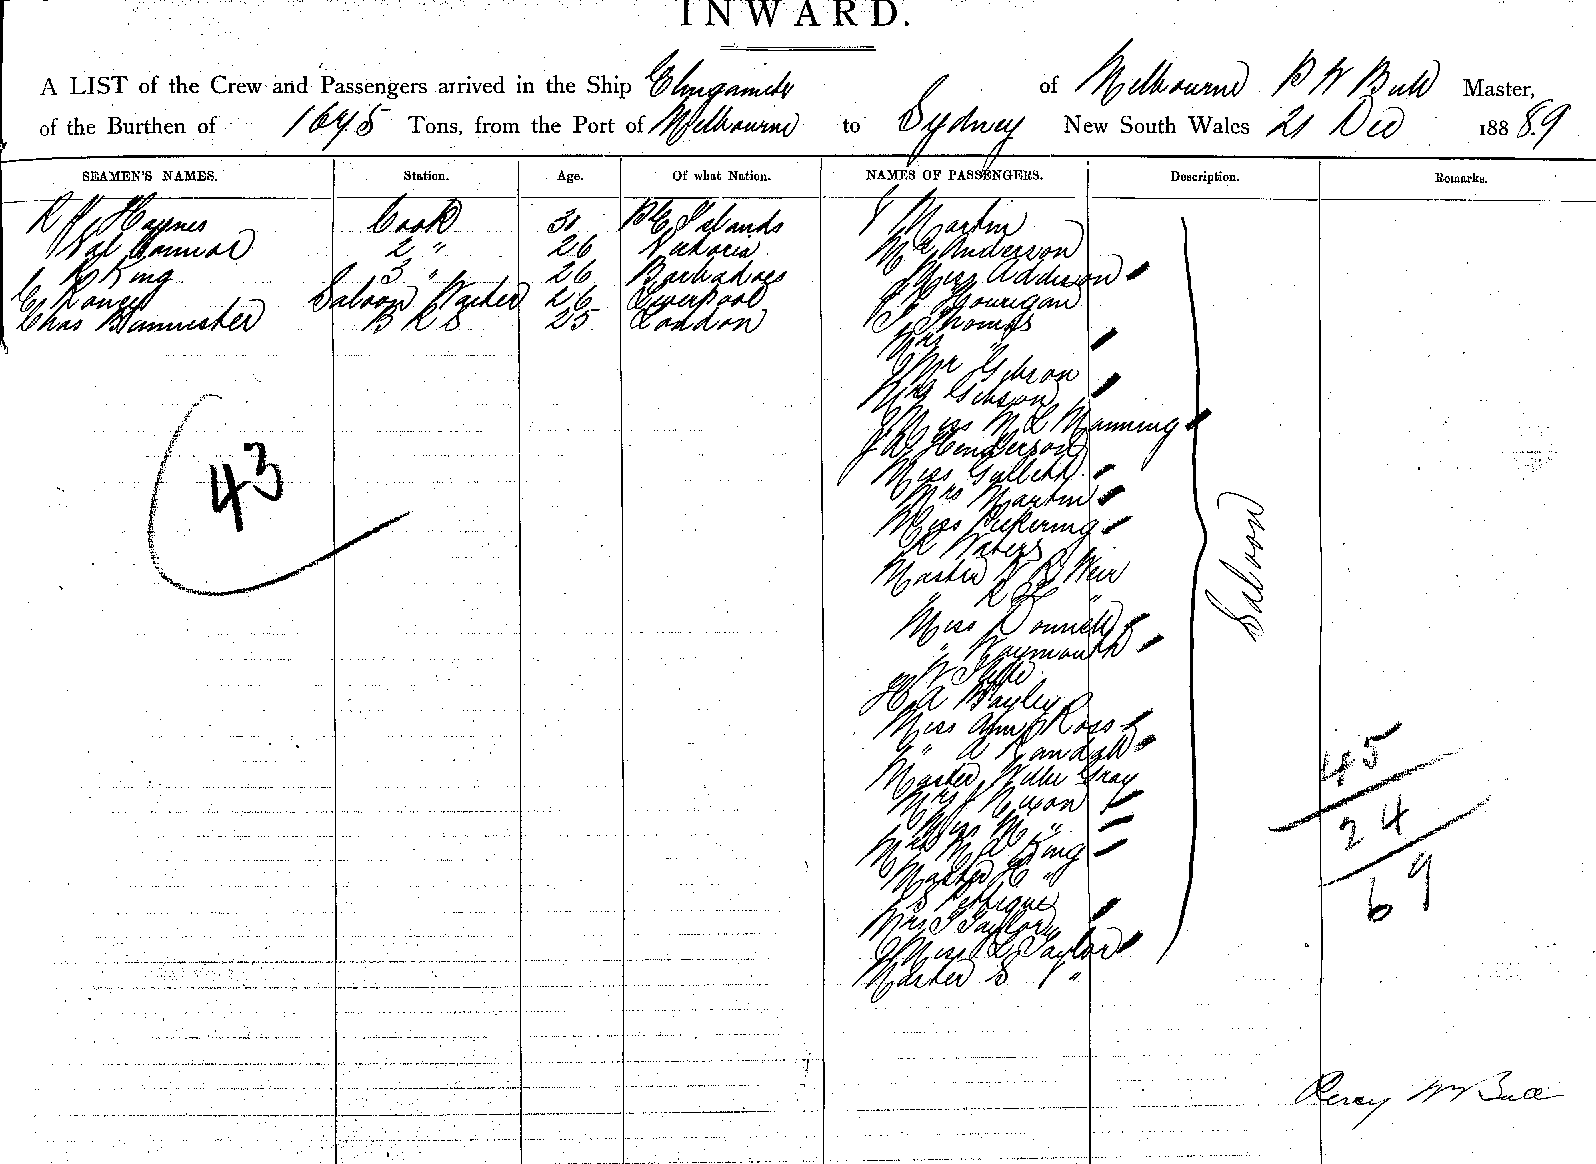 INWARD.
A LIST of the Crew and Passengers arrived in the Ship Elingamite of Melbourne P W Bull Master,
of the Burthen of 1675 Tons, from the Port of Melbourne to Sydney New South Wales 21 Dec 188 89
SEAMEN'S NAMES. Station. Age. Of what Nation. NAMES OF PASSENGERS. Description. Remarks.
Haynes Cook 31 Islands Martin
Connor 2 " 26 Victoria Anderson
R King 3 " 26 Barbadoes Miss Addison
Saloon 26 Liverpool Hourigan
Chas Bannister 25 London Thomas
Mrs "
Mr Gibson
Mrs Gibson
Miss M L Manning
Henderson
43
Miss
Mrs Martin
Miss Pickering
Waters
Master Weir
Saloon
Miss Donnell
" Waymouth
H A Bayley
Miss Amy Ross
" A Randall
Master Willie Gray
45
Mrs J Nixon
Miss M "
24
Mrs M A King
Master "
69
Mrs J Taylor
Miss L Taylor
Master S "
Percy W Bull